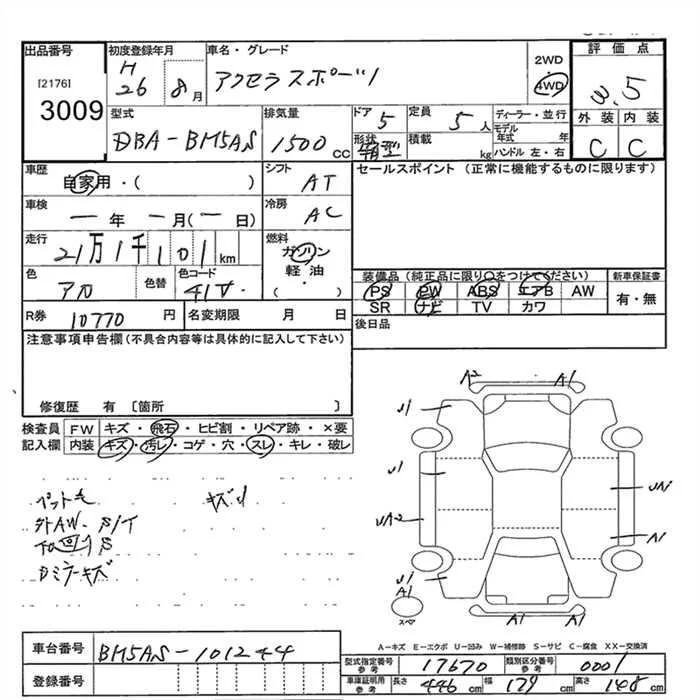 出品番号 初度登録年月 車名・グレード 評価点
[2176] H 26 8月 アクセラスポーツ 2WD 3.5
3009 4WD
型式 排気量 ドア 定員 ディーラー・並行 外装 内装
DBA-BM5AS 1500cc 5 5人 モデル年式 年 C C
形状 箱型 積載 kg ハンドル 左・右
車歴 シフト セールスポイント (正常に機能するものに限ります)
自家用・( ) AT
車検 冷房
ー年 ー月(ー日) AC
走行 燃料
21万1千101km ガソリン
軽油・( )
色 色替 色コード 装備品 (純正品に限り○をつけてください) 新車保証書
アカ 41V PS PW ABS エアB AW 有・無
SR ナビ TV カワ
R券 10770円 名変期限 月 日 後日品
注意事項申告欄 (不具合内容等は具体的に記入して下さい)
修復歴 有 [箇所 ]
検査員 FW キズ・飛石・ヒビ割・リペア跡・×要
記入欄 内装 キズ・汚レ・コゲ・穴・スレ・キレ・破レ
ペット毛
外AW. S/T
下回りS
Dミラーキズ
A2 A1
U1
U1 UA1
UA2 A1
U1
A1 A1 A1
スペア
A-キズ E-エクボ U-凹み W-補修跡 S-サビ C-腐食 XX-交換済
車台番号 BM5AS-101244 型式指定番号 参考 17670 類別区分番号 参考 0001
登録番号 車庫証明用 参考 長さ 446cm 幅 179cm 高さ 148cm